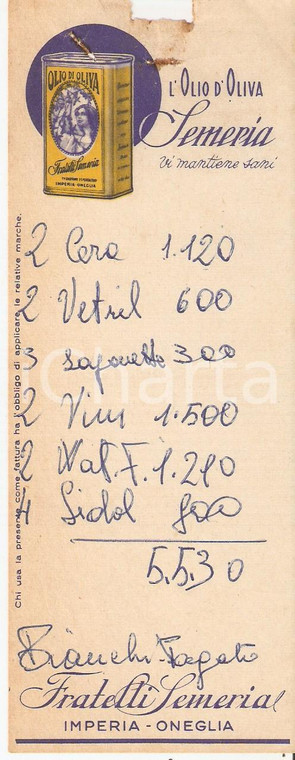 OLIO DI OLIVA
Fratelli Semeria
IMPERIA-ONEGLIA
L'OLIO D'OLIVA
Semeria
vi mantiene sani
Chi usa la presente come fattura ha l'obbligo di applicare le relative marche.
2 Cera 1.120
2 Vetril 600
3 saponette 300
2 Vim 1.500
2 1.210
4 Sidol 800
5.530
Bianchi Pagato
Charta
Fratelli Semeria
IMPERIA - ONEGLIA